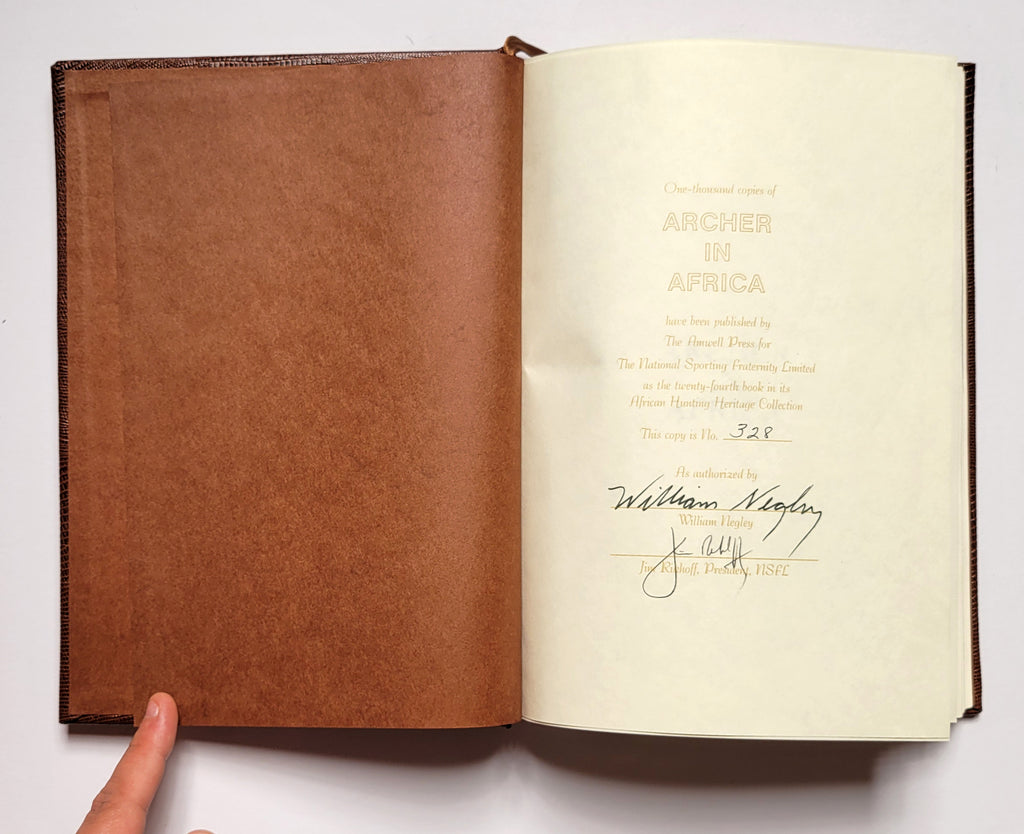 One-thousand copies of
ARCHER
IN
AFRICA
have been published by
The Amwell Press for
The National Sporting Fraternity Limited
as the twenty-fourth book in its
African Hunting Heritage Collection
This copy is No. 328
As authorized by
William Negley
William Negley
Jim Rikhoff, President, NSFL